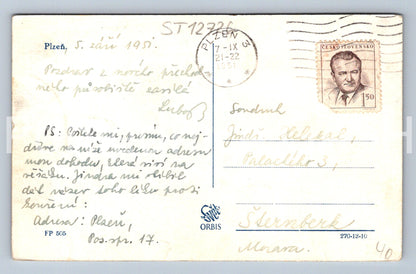 ST 12726
Plzeň, 5. září 1951.
Pozdrav z nového přechod-
ného působiště zasílá
Luboš
PS: Pošlete mi, prosím, co nej-
dříve na níže uvedenou adresu
mou dohodu, která visí na
věšáku. Jindra mi slíbil
dát název toho léku proti
kouření:
Adresa: Plzeň,
Pos. spr. 17.
FP 505
PLZEŇ 3
7-IX
21-22
1951
ČESKOSLOVENSKO
1.50
Soudruh
Jindř.
Palackého 3,
Šternberk
Morava.
ORBIS
270-12-10
40